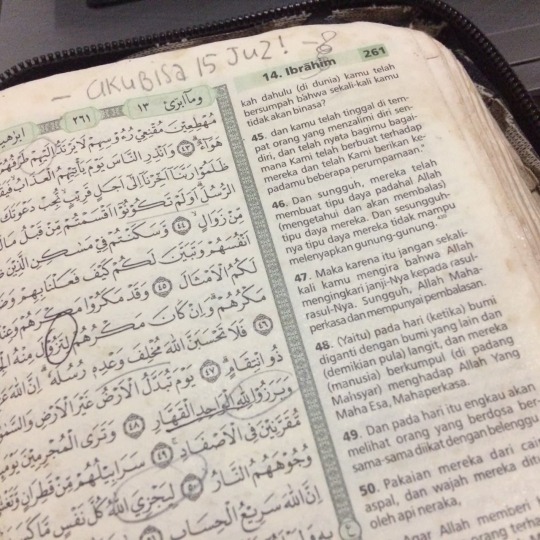 - AKU BISA 15 JUZ!
14. Ibrāhīm 261
وماابرئ ١٣
٢٦١
kah dahulu (di dunia) kamu telah
bersumpah bahwa sekali-kali kamu
tidak akan binasa?
45. dan kamu telah tinggal di tem-
pat orang yang menzalimi diri sen-
diri, dan telah nyata bagimu bagai-
mana Kami telah berbuat terhadap
mereka dan telah Kami berikan ke-
padamu beberapa perumpamaan."
46. Dan sungguh, mereka telah
membuat tipu daya padahal Allah
(mengetahui dan akan membalas)
tipu daya mereka. Dan sesungguh-
nya tipu daya mereka tidak mampu
melenyapkan gunung-gunung.
47. Maka karena itu jangan sekali-
kali kamu mengira bahwa Allah
mengingkari janji-Nya kepada rasul-
rasul-Nya. Sungguh, Allah Maha-
perkasa dan mempunyai pembalasan.
48. (Yaitu) pada hari (ketika) bumi
diganti dengan bumi yang lain dan
(demikian pula) langit, dan mereka
(manusia) berkumpul (di padang
Mahsyar) menghadap Allah Yang
Maha Esa, Mahaperkasa.
49. Dan pada hari itu engkau akan
melihat orang yang berdosa ber-
sama-sama diikat dengan belenggu.
50. Pakaian mereka dari
aspal, dan wajah mereka
oleh api neraka,
Allah memberi
مُهْطِعِيْنَ مُقْنِعِيْ رُءُوْسِهِمْ لَا يَرْتَدُّ اِلَيْهِمْ طَرْفُهُمْ
هَوَاۤءٌ ٤٣ وَاَنْذِرِ النَّاسَ يَوْمَ يَأْتِيْهِمُ الْعَذَابُ
ظَلَمُوْا رَبَّنَآ اَخِّرْنَآ اِلٰٓى اَجَلٍ قَرِيْبٍ نُّجِبْ دَعْوَتَكَ
الرُّسُلَ اَوَلَمْ تَكُوْنُوْٓا اَقْسَمْتُمْ مِّنْ قَبْلُ مَا
مِّنْ زَوَالٍ ٤٤ وَّسَكَنْتُمْ فِيْ مَسٰكِنِ الَّذِيْنَ
اَنْفُسَهُمْ وَتَبَيَّنَ لَكُمْ كَيْفَ فَعَلْنَا بِهِمْ
لَكُمُ الْاَمْثَالَ ٤٥ وَقَدْ مَكَرُوْا مَكْرَهُمْ
مَكْرُهُمْ وَاِنْ كَانَ مَكْرُهُمْ لِتَزُوْلَ مِنْهُ
٤٦ فَلَا تَحْسَبَنَّ اللّٰهَ مُخْلِفَ وَعْدِهٖ رُسُلَهٗ اِنَّ اللّٰهَ
ذُو انْتِقَامٍ ٤٧ يَوْمَ تُبَدَّلُ الْاَرْضُ غَيْرَ الْاَرْضِ
وَبَرَزُوْا لِلّٰهِ الْوَاحِدِ الْقَهَّارِ ٤٨ وَتَرَى الْمُجْرِمِيْنَ
مُّقَرَّنِيْنَ فِى الْاَصْفَادِ ٤٩ سَرَابِيْلُهُمْ مِّنْ قَطِرَانٍ
وُجُوْهَهُمُ النَّارُ ٥٠ لِيَجْزِيَ اللّٰهُ كُلَّ نَفْسٍ مَّا
اِنَّ اللّٰهَ سَرِيْعُ الْحِسَابِ ٥١